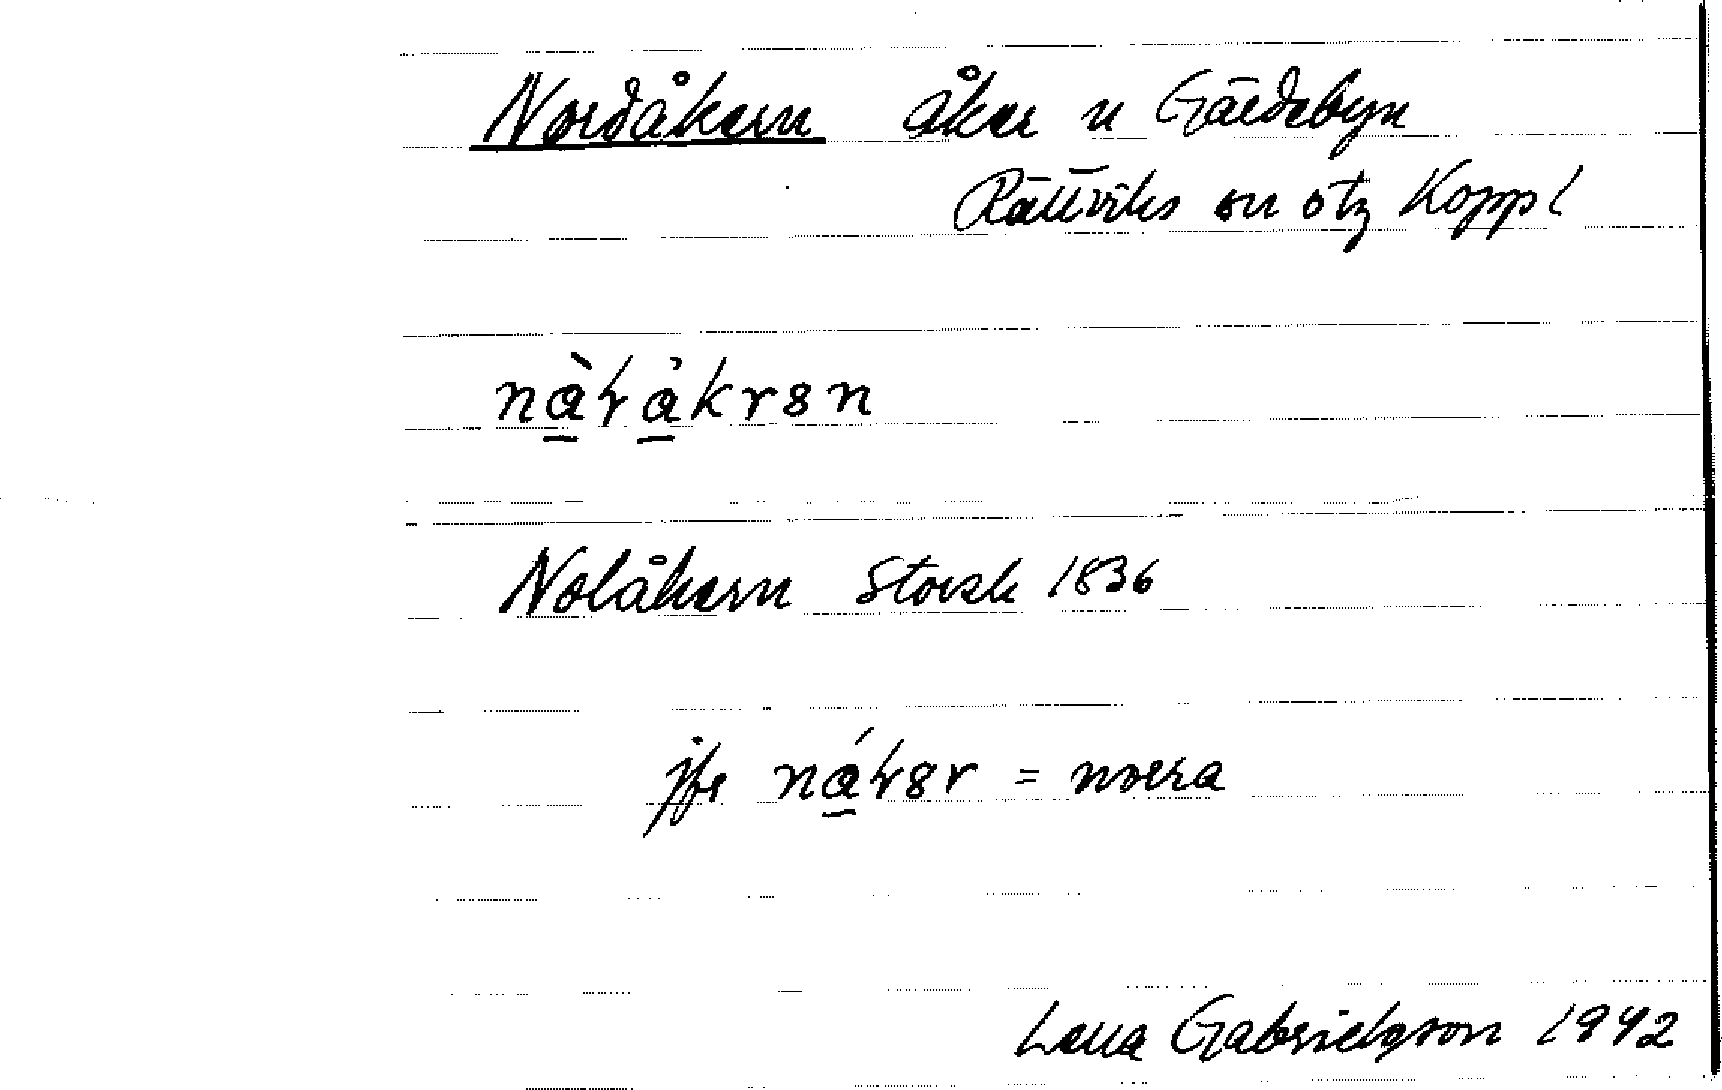 Nordåkern åker n Gärdebyn
Rättviks sn ö tg Koppl
nàrȧkrən
Nolåkern Storsk 1836
jfr nárər = norra
Lena Gabrielsson 1942